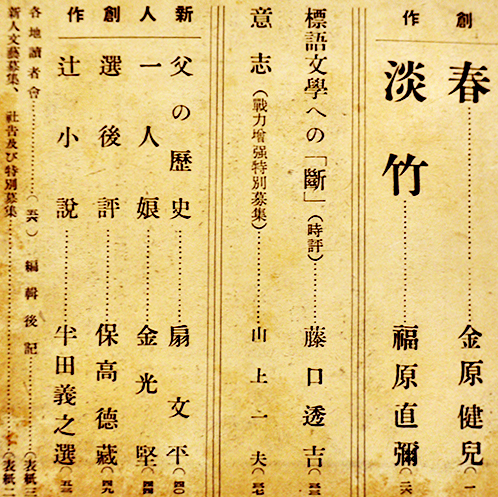 創作
春……金原健兒(一
淡竹……福原直彌(二六
標語文學への「斷」(時評)……藤口透吉(三三
意志(戰力增强特別募集)……山上一夫(三七
新人創作
父の歷史……扇文平(四〇
一人娘……金光堅(四四
選後評……保高德藏(四九
辻小說……半田義之選(五三
各地讀者會…… 編輯後記……(表紙三
新人文藝募集、社告及び特別募集……(表紙二